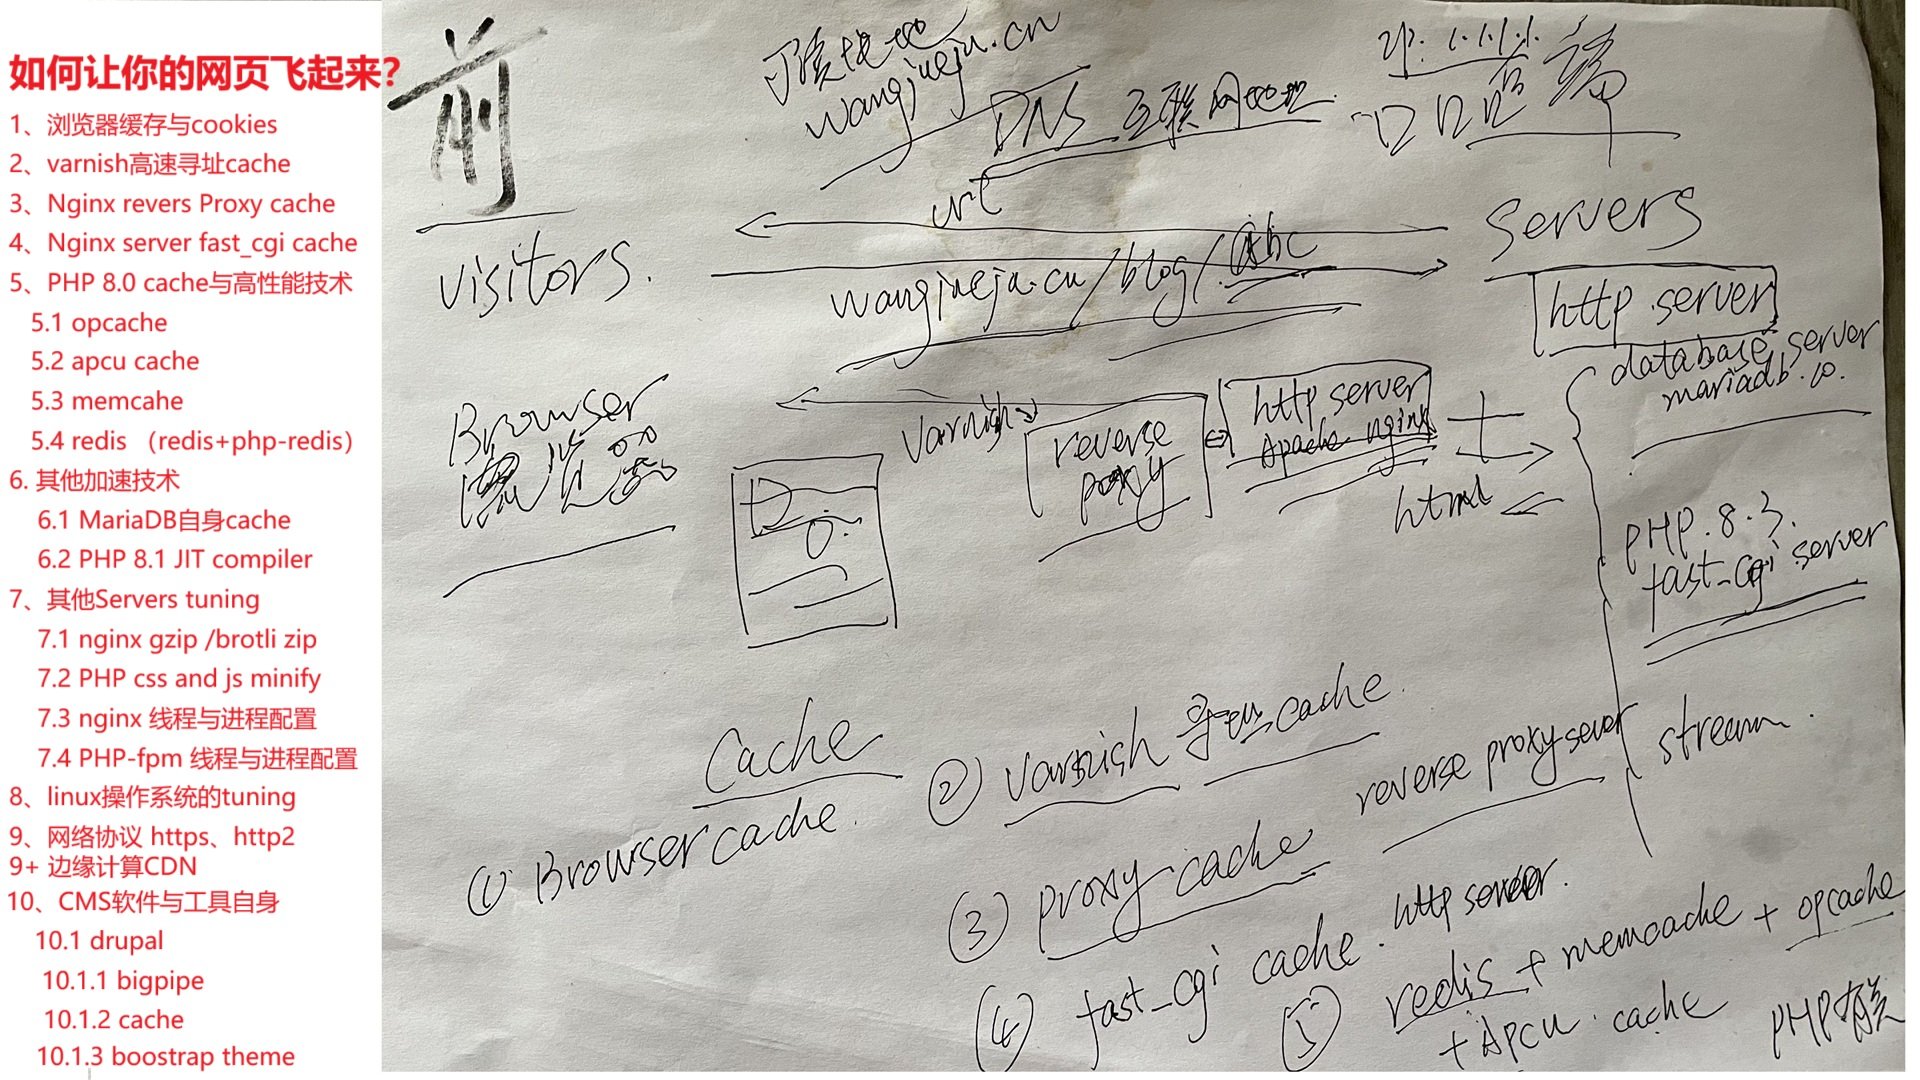 如何让你的网页飞起来?
1、浏览器缓存与cookies
2、varnish高速寻址cache
3、Nginx revers Proxy cache
4、Nginx server fast_cgi cache
5、PHP 8.0 cache与高性能技术
5.1 opcache
5.2 apcu cache
5.3 memcahe
5.4 redis （redis+php-redis）
6. 其他加速技术
6.1 MariaDB自身cache
6.2 PHP 8.1 JIT compiler
7、其他Servers tuning
7.1 nginx gzip /brotli zip
7.2 PHP css and js minify
7.3 nginx 线程与进程配置
7.4 PHP-fpm 线程与进程配置
8、linux操作系统的tuning
9、网络协议 https、http2
9+ 边缘计算CDN
10、CMS软件与工具自身
10.1 drupal
10.1.1 bigpipe
10.1.2 cache
10.1.3 boostrap theme
前
wangjueju.cn
DNS 互联网地址
IP. 1.1.1.1.
后端
visitors.
url
wangjueju.cn/blog/abc
Servers
http server
database server
mariadb.10.
Browser
浏览器
Varnish
reverse
proxy
http server
Apache nginx
html
PHP.8.3.
fast_cgi server
stream.
Cache
① Browser cache.
② varnish 寻址 cache.
③ proxy cache
reverse proxy sever
④ fast_cgi cache. http server.
⑤ redis + memcache + opcache
+ APCU. cache
PHP有关